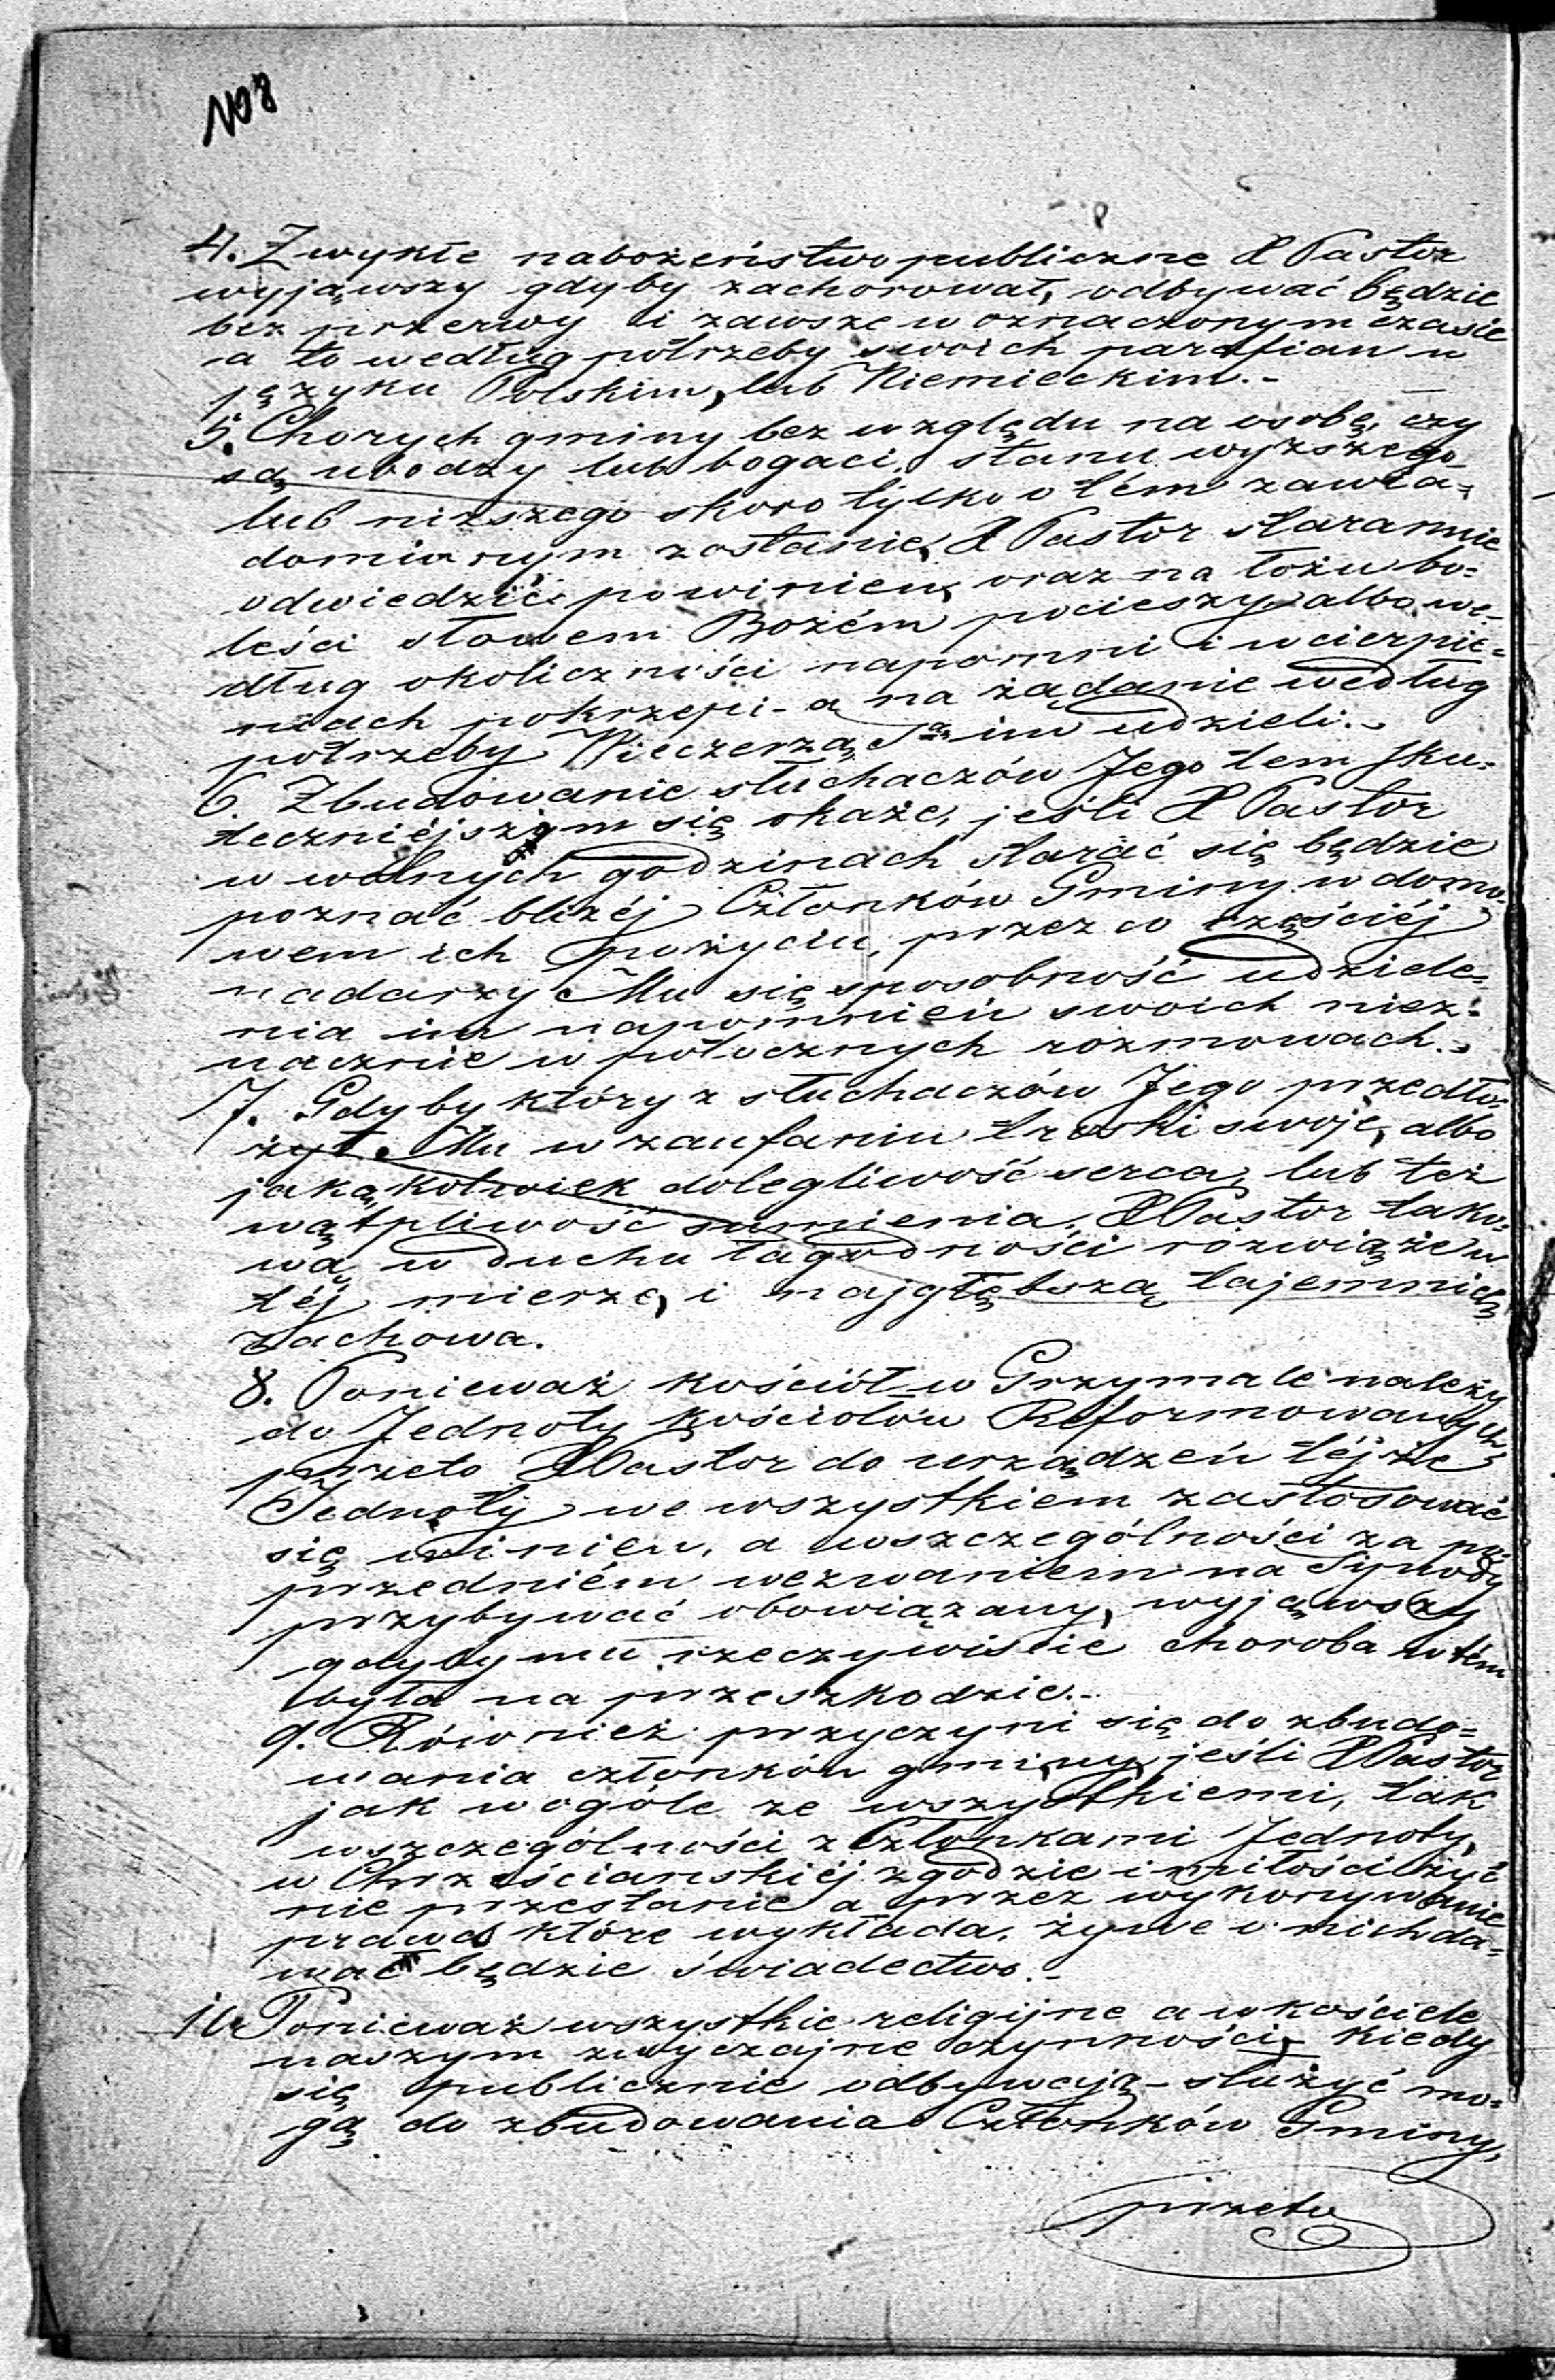 No 8
4. Zwykłe nabożeństwo publiczne X Pastor
wyjąwszy gdyby zachorował, odbywać będzie
bez przerwy i zawsze w oznaczonym czasie
a to według potrzeby swoich parafian w
języku Polskim, lub Niemieckim.-
5. Chorych gminy bez względu na osobę, czy
są ubodzy lub bogaci, stanu wyższego
lub niższego skoro tylko o tém zawia=
domionym zostanie, X Pastor starannie
odwiedzić powinien, oraz na łożu bo=
leści słowem Bożém pocieszy albo we=
dług okoliczności napomni i w cierpie=
niach pokrzepi - a na żądanie według
potrzeby Wieczerzą Są im udzieli.-
6. Zbudowanie słuchaczów Jego tem sku=
teczniéjszym się okaże, jeśli X Pastor
w wolnych godzinach starać się będzie
poznać bliżéj Członków Gminy w domo=
wem ich pożyciu, przez co częściéj
nadarzy Mu się sposobność udziele=
nia im napomnień swoich niez=
nacznie w potocznych rozmowach.-
7. Gdyby który z słuchaczów Jego przedło=
żył Mu w zaufaniu troski swoje, albo
jakąkolwiek dolegliwość serca, lub też
wątpliwość sumienia, X Pastor tako=
wą w duchu łagodności rozwiąże w
téj mierze, i najgłębszą tajemnicę
zachowa.
8. Ponieważ kościół w Grzymale należy
do Jednoty kościołów Reformowanych,
przeto X Pastor do urządzeń téjże
Jednoty we wszystkiem zastosować
się winien, a wszczególności za po=
przedniém wezwaniem na Synody
przybywać obowiązany, wyjąwszy
gdyby mu rzeczywiście choroba w tém
była na przeszkodzie.-
9. Również przyczyni się do zbudo=
wania członków gminy, jeśli X Pastor
jak wogóle ze wszystkiemi, tak
wszczególności z Członkami Jednoty,
w Chrześcianskiéj zgodzie i miłości żyć
nie przestanie a przez wykonywanie
prawd które wykłada, żywe o nich da=
wać będzie świadectwo.-
10. Ponieważ wszystkie religijne a w kościele
naszym zwyczajne czynności, kiedy
się publicznie odbywają - służyć mo=
gą do zbudowania Członków Gminy,
przeto